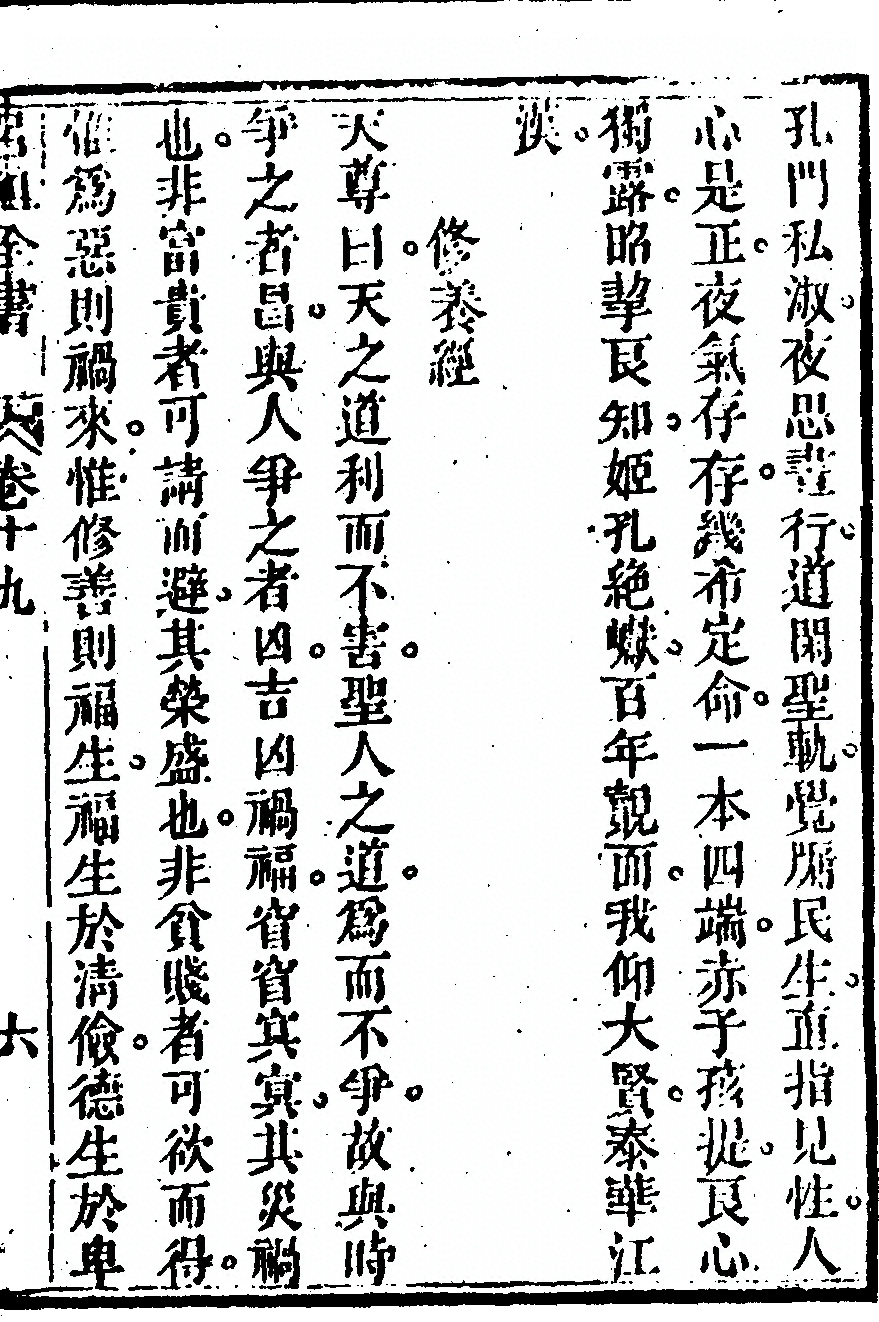 孔門私淑夜思晝行道閑聖軌覺牖民生直指見性人
心是正夜氣存存幾希定命一本四端赤子孩提良心
獨露昭挈良知姬孔絶嶽百年覿面我仰大賢泰華江
漢
修養經
天尊曰天之道利而不害聖人之道爲而不爭故與時
爭之者昌與人爭之者凶吉凶禍福窅窅冥冥其災禍
也非富貴者可請而避其榮盛也非貧賤者可欲而得
惟爲惡則禍來惟修善則福生福生於清儉德生於卑
呂祖全書 卷十九 六